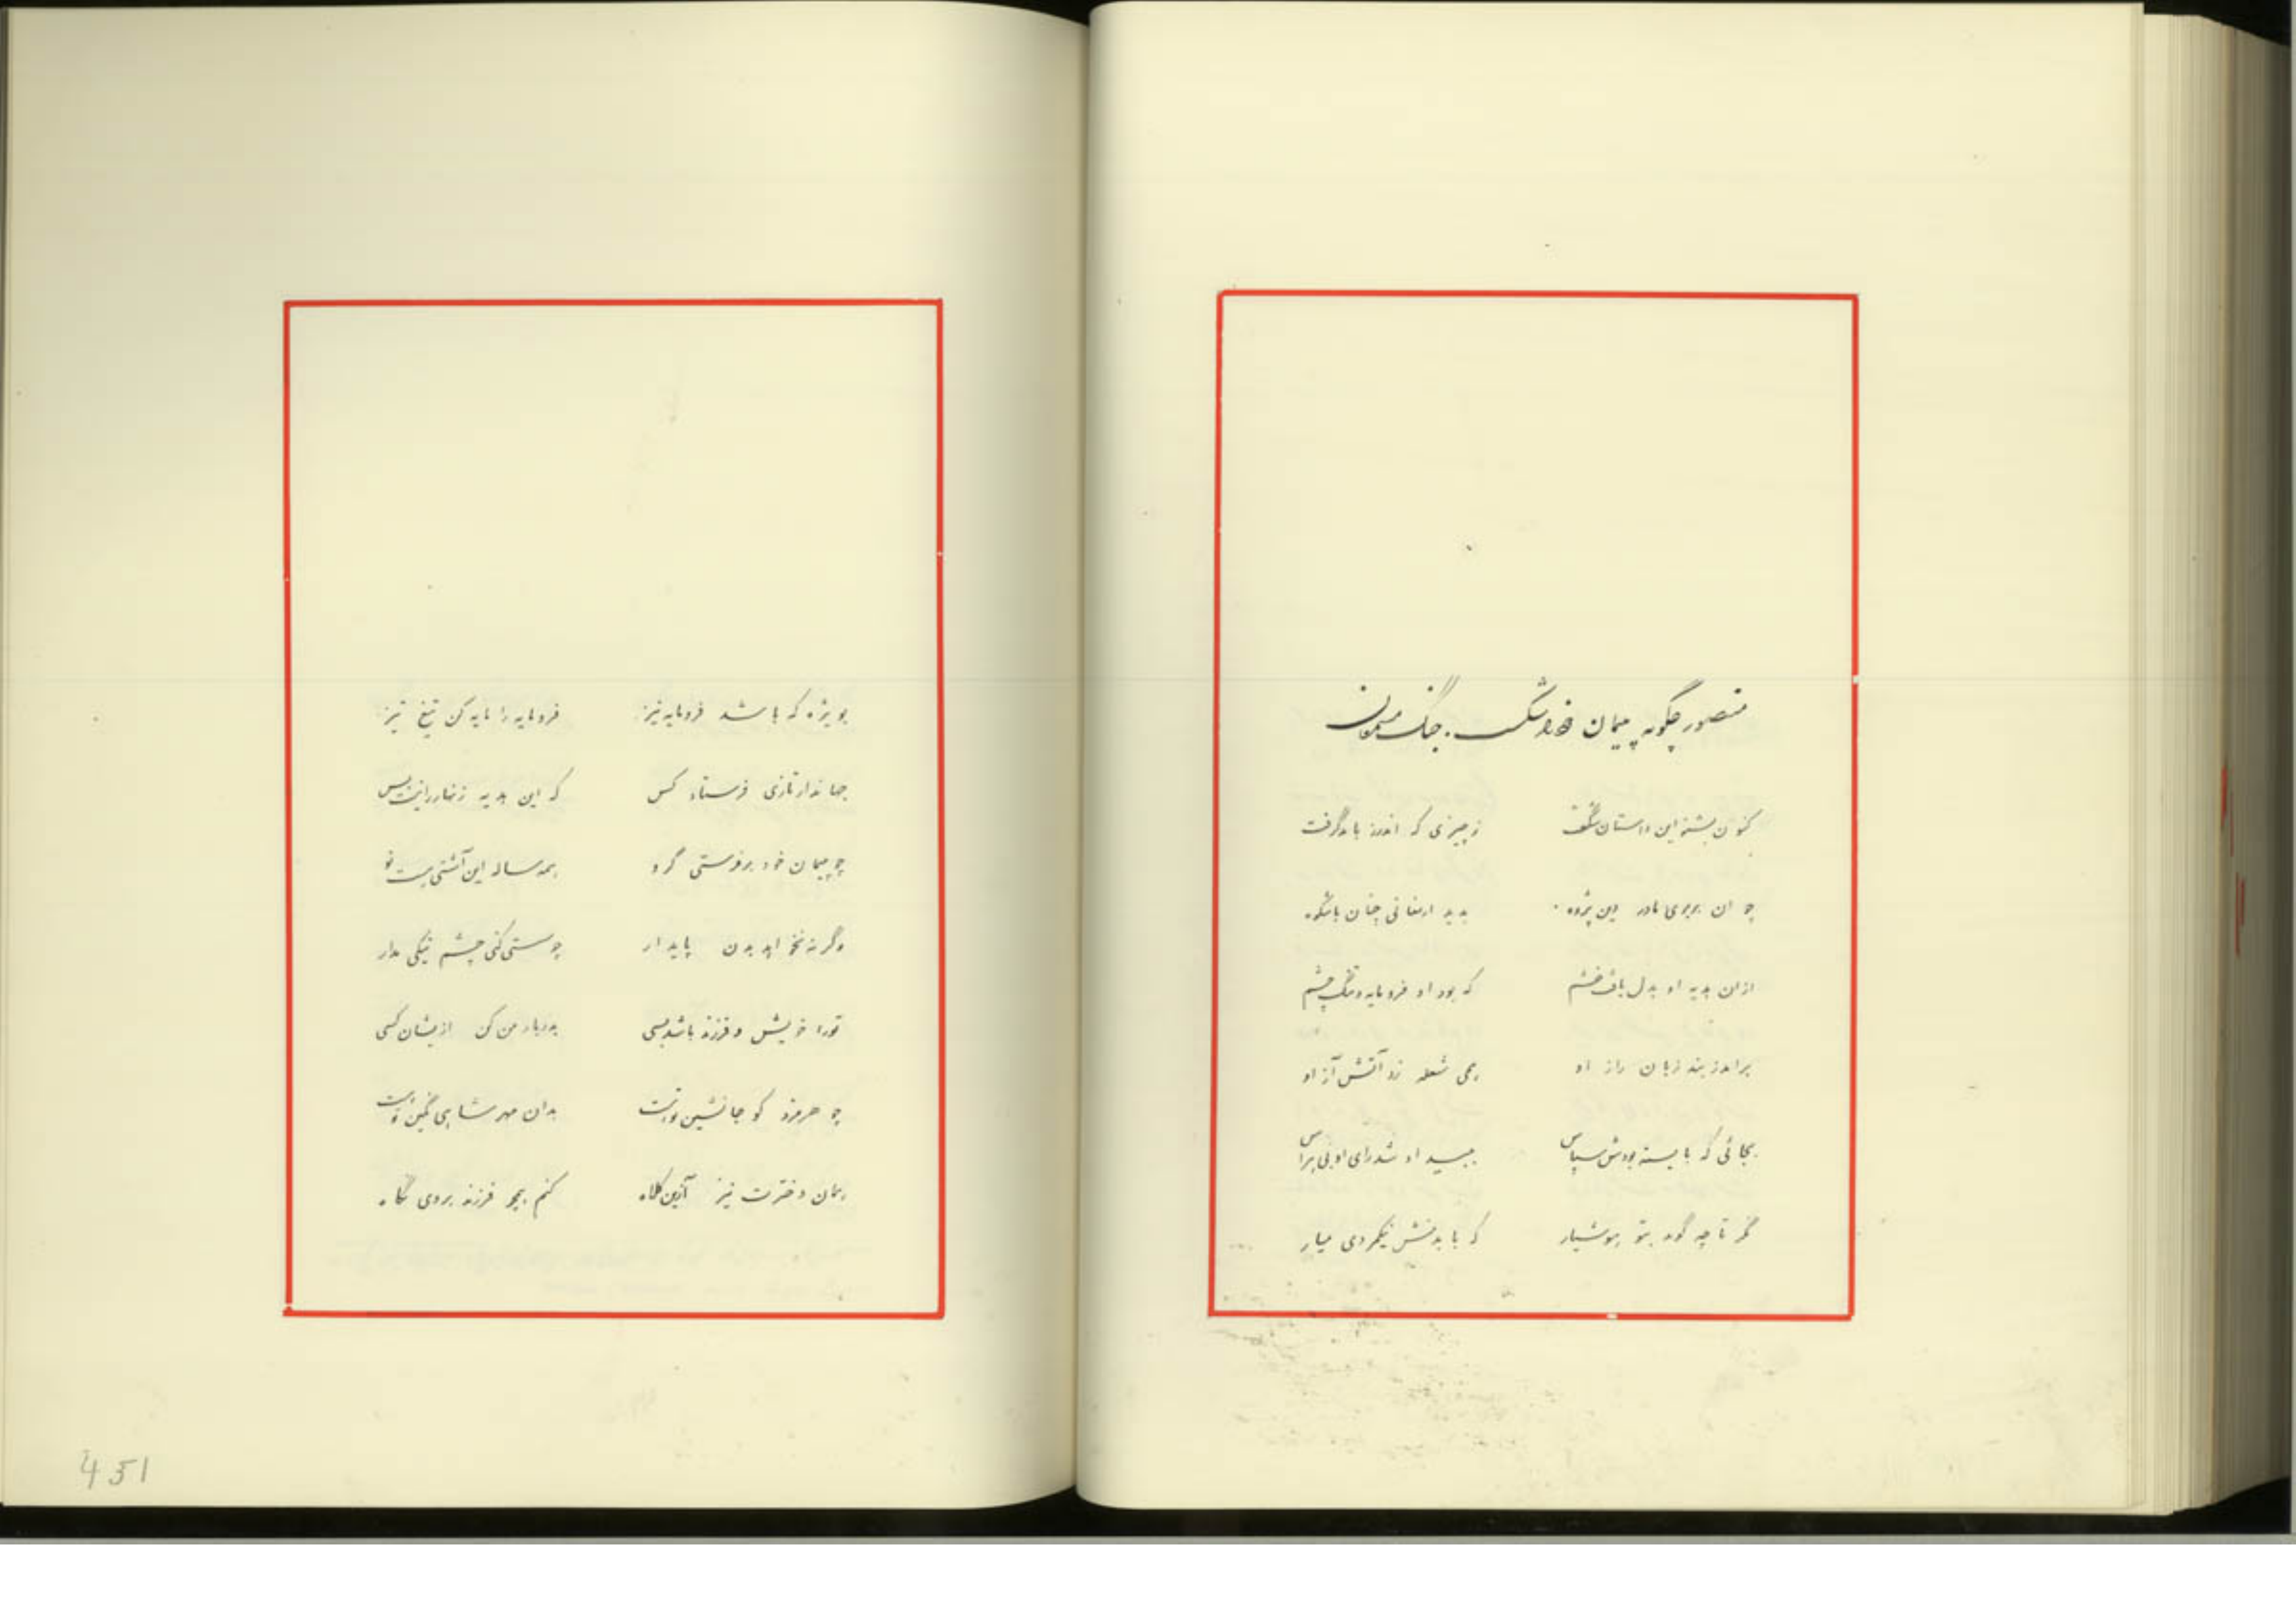 منصور چگونه پیمان خود شکست. جنگ میمون
کنون بشنو این داستان شگفت زچیزی که اندرز باید گرفت
چو آن بربری مادر دین پژوه بدید ارمغانی چنان باشکوه
ازان هدیه او بدل یافت خشم که بود او فرومایه و تنگ چشم
برامد زبند زبان راز او همی شعله زد آتش آز او
بجائی که بایسته بودش سپاس ببسید او شد رای او بی هراس
نگر تا چه گوید بتو هوشیار که با بدمنش نیکمردی میار
بویژه که باشد فرومایه نیز فرومایه را مایه کن تیغ تیز
جهاندار تازی فرستاد کس که این هدیه زنهار را نیست بس
چو پیمان خود بر فرستی گرو همه ساله این آشتی هست نو
وگرنه نخواهد بدن پایدار چو سستی کنی چشم نیکی مدار
تورا خویش و فرزند باشد بسی بدربار من کن ازیشان کسی
چو هرمزد کو جانشین تورست بدان مهر شاهی نگین تورست
همان دخترت نیز آذین کلاه کنم همچو فرزند بروی نگاه
451